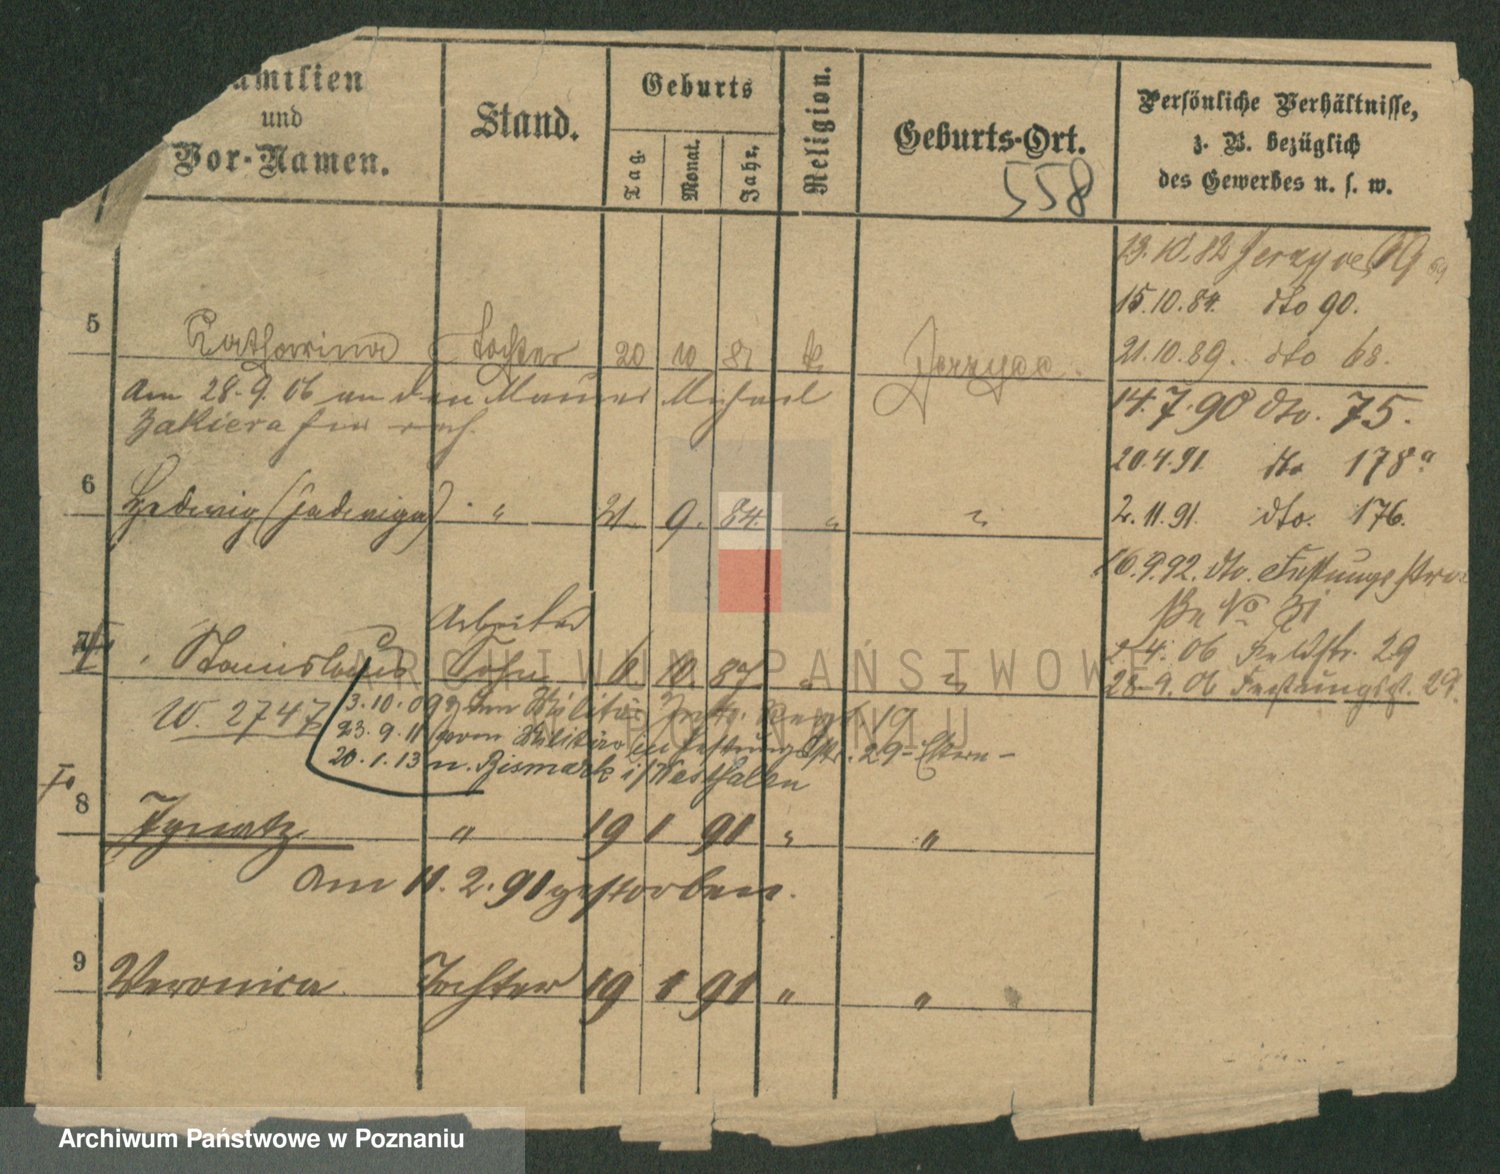 Familien
und
Vor-Namen.
Stand.
Geburts
Tag.
Monat.
Jahr.
Religion.
Geburts-Ort.
558
Persönliche Verhältnisse,
z. B. bezüglich
des Gewerbes u. s. w.
13.10.82 Jerzyce 69
15.10.84. dto 90.
21.10.89. dto 68.
14.7.90 dto. 75.
20.4.91. dto 178a
2.11.91. dto. 176.
16.9.92. dto. Festungsstra
ße No 31
2.4.06 Feldstr. 29
28.9.06 Festungsst. 29.
5 Katharina Tochter 20 10 81 k Jerzyce.
Am 28.9.06 an den Maurer Michael
Zakiera
6 Hedwig (Jadwiga) " 21 9. 84. " "
Arbeiter
7 Stanislaus Sohn 6 10. 87 " "
W. 2747
3.10.09 zum Militär Inftr. Regt. 19
23.9.11 vom Militär in Festungsstr. 29 Eltern
20.1.13 n. Bismark i/Westfalen
8 Ignatz " 19 1 91 " "
Am 11.2.91 gestorben.
9 Veronica Tochter 19 1 91 " "
ARCHIWUM PAŃSTWOWE
W POZNANIU
Archiwum Państwowe w Poznaniu